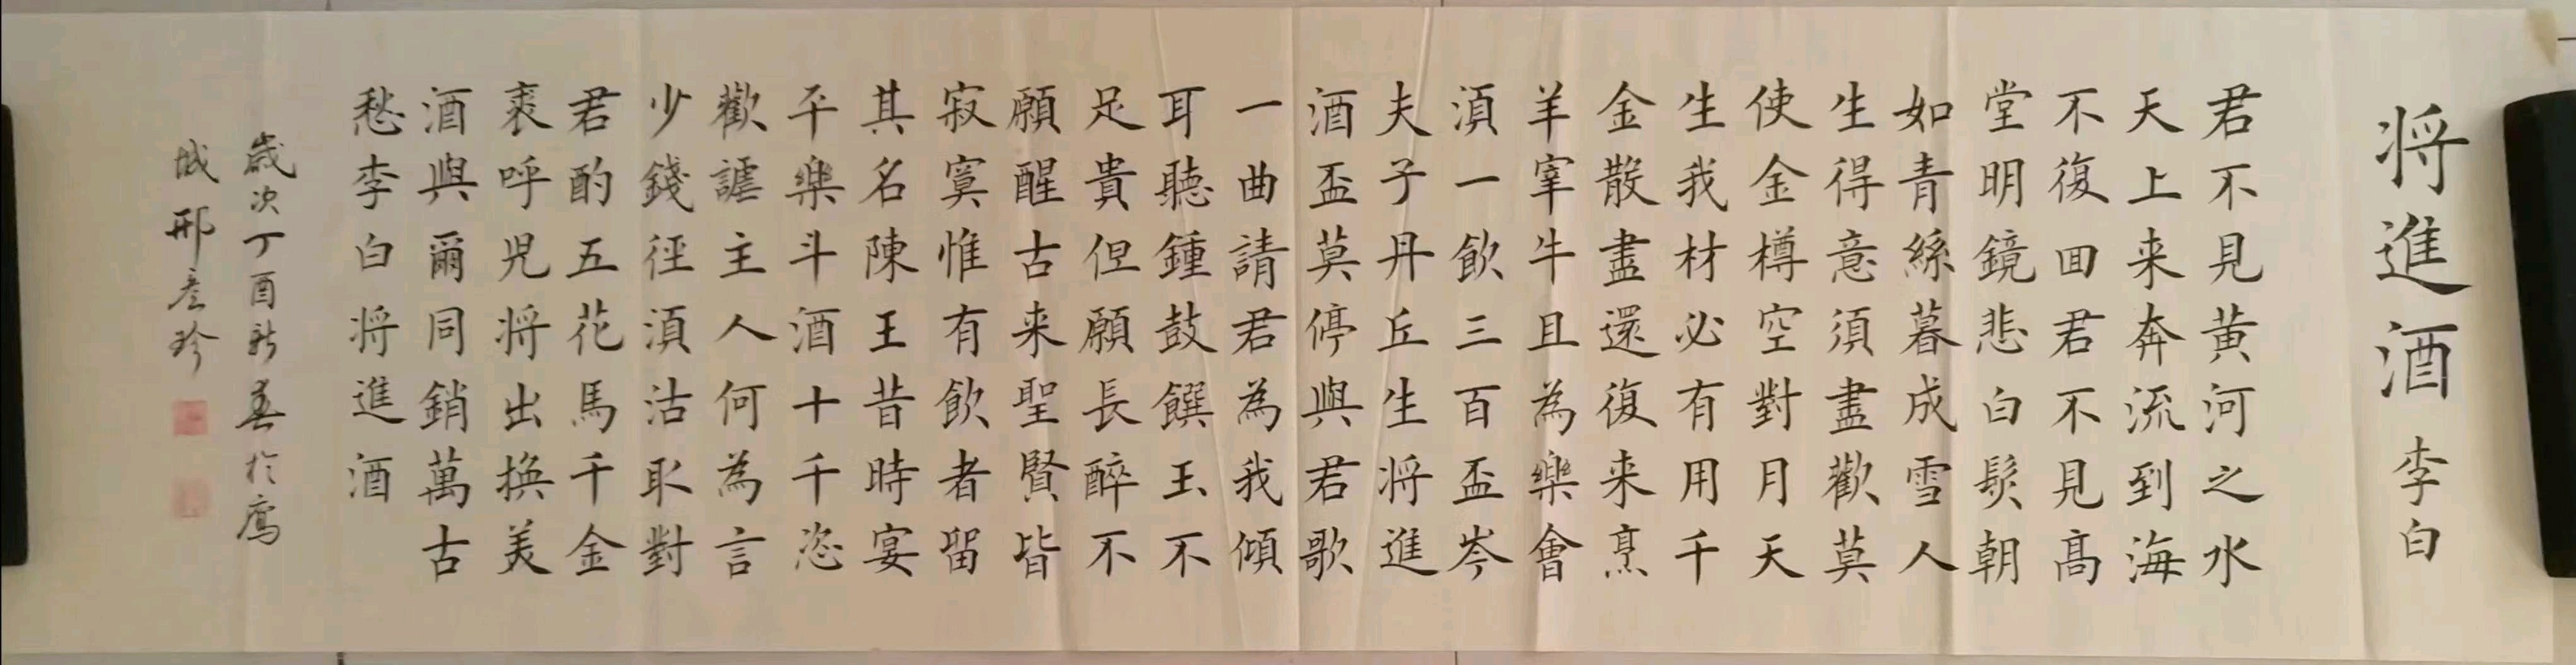 将進酒 李白
君不見黄河之水
天上来奔流到海
不復回君不見高
堂明鏡悲白髮朝
如青絲暮成雪人
生得意須盡歡莫
使金樽空對月天
生我材必有用千
金散盡還復来烹
羊宰牛且為樂會
須一飲三百盃岑
夫子丹丘生将進
酒盃莫停與君歌
一曲請君為我傾
耳聽鍾鼓饌玉不
足貴但願長醉不
願醒古来聖賢皆
寂寞惟有飲者留
其名陳王昔時宴
平樂斗酒十千恣
歡謔主人何為言
少錢徑須沽取對
君酌五花馬千金
裘呼児将出換美
酒與爾同銷萬古
愁李白将進酒
歲次丁酉新春於
城邢彦珍